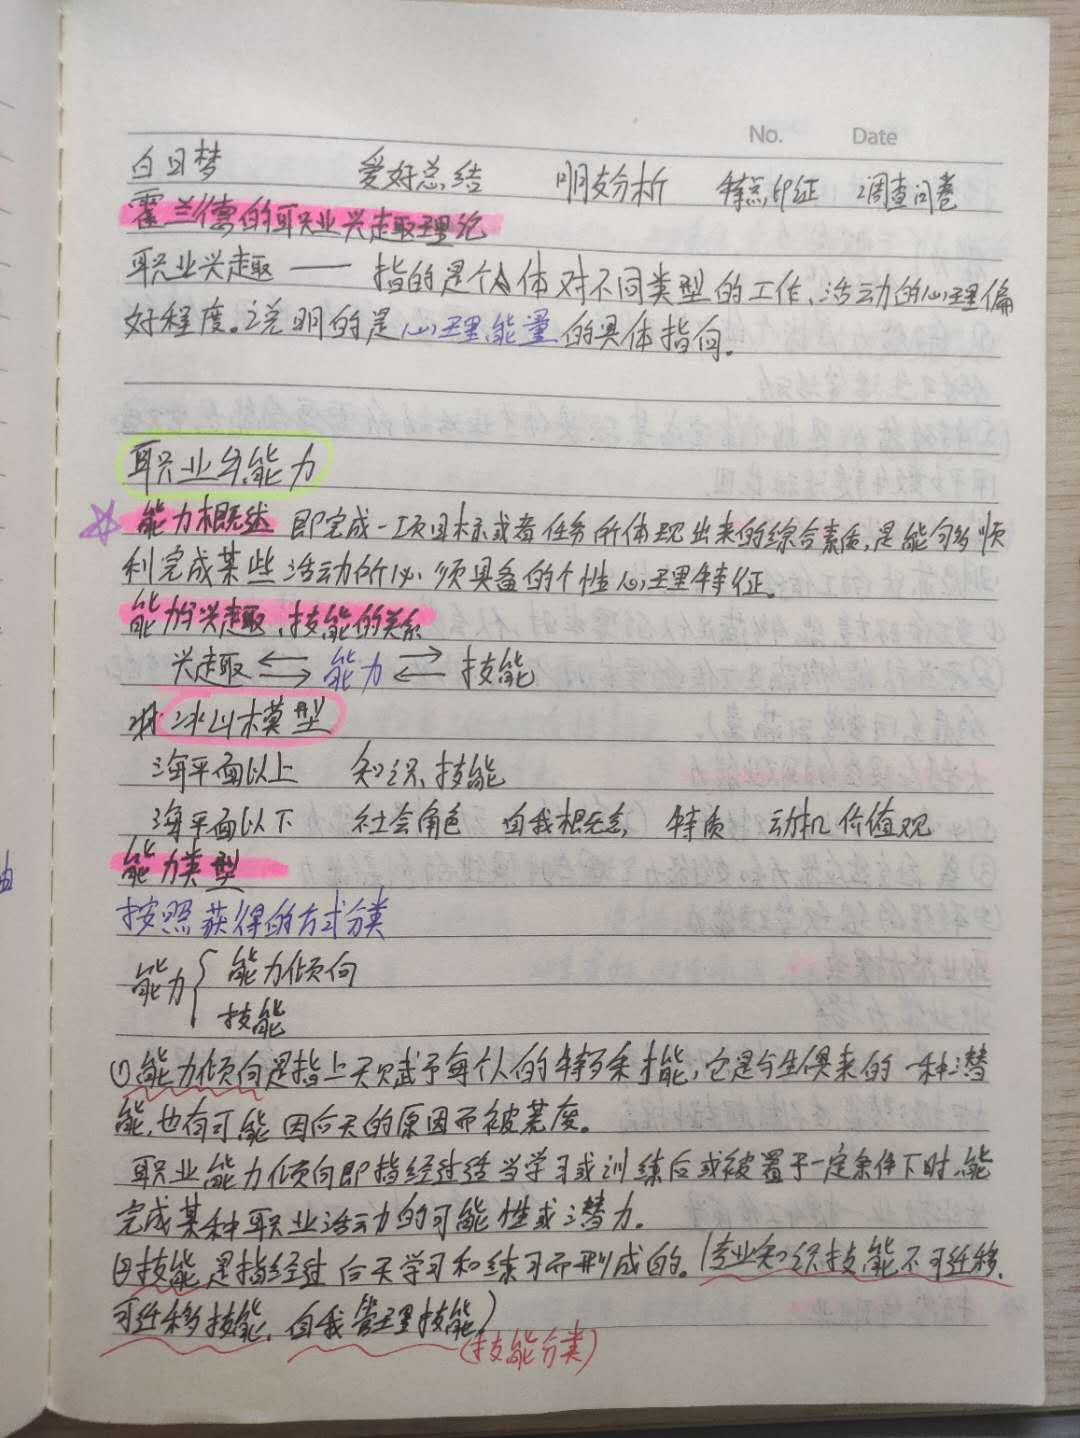 No. Date
白日梦 爱好总结 朋友分析 特点印证 调查问卷
霍兰德的职业兴趣理论
职业兴趣 —— 指的是个体对不同类型的工作、活动的心理偏
好程度。说明的是心理能量的具体指向。
职业与能力
☆ 能力概述 即完成一项目标或者任务所体现出来的综合素质,是能够顺
利完成某些活动所必须具备的个性心理特征。
能力与兴趣、技能的关系
兴趣 ⇌ 能力 ⇌ 技能
冰山模型
海平面以上 知识、技能
海平面以下 社会角色 自我概念 特质 动机 价值观
能力类型
按照获得的方式分类
能力 { 能力倾向
技能
①能力倾向是指上天赋予每个人的特殊才能,它是与生俱来的一种潜
能,也有可能因后天的原因而被荒废。
职业能力倾向即指经过适当学习或训练后或被置于一定条件下时,能
完成某种职业活动的可能性或潜力。
②技能是指经过后天学习和练习而形成的。(专业知识技能不可迁移、
可迁移技能、自我管理技能)
(技能分类)